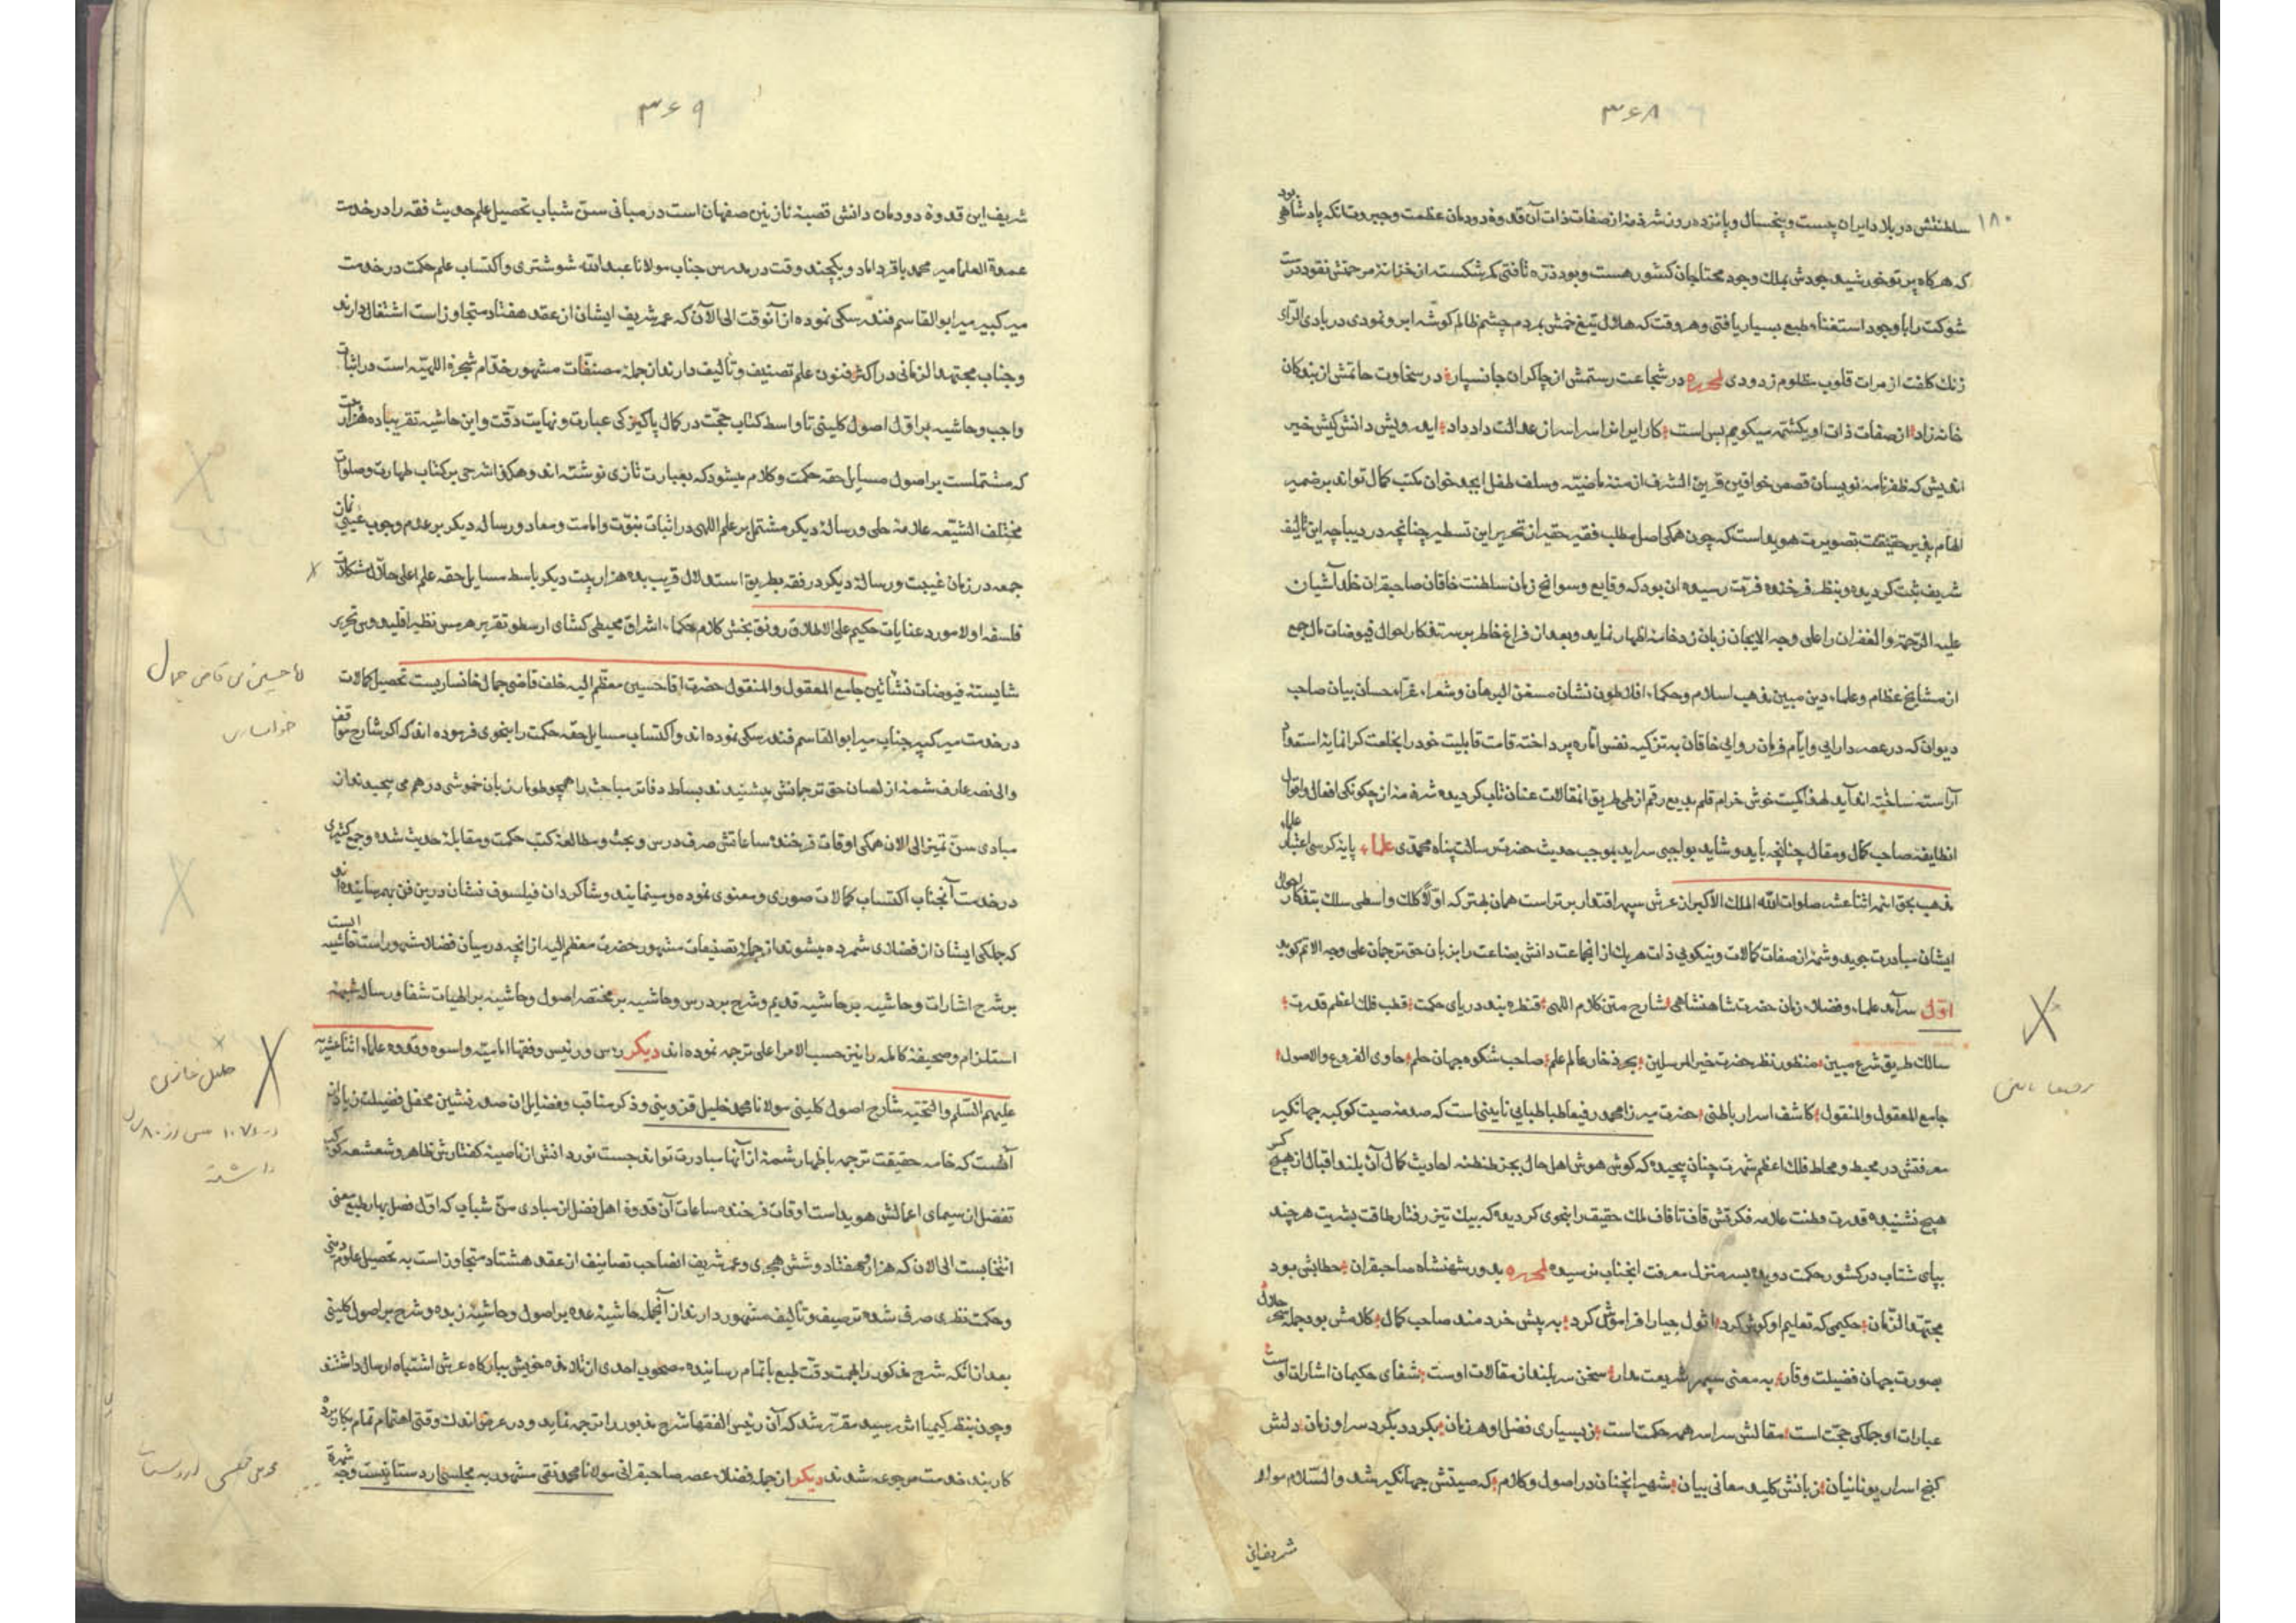 ۳۶۸
۱۸۰
سلطنتش در بلاد ایران بیست و پنجسال و پانزده روز شرذمهٔ از صفات ذات آن قدوهٔ دودمان عظمت و جبروت آنکه پادشاهی بود
که هرگاه پرتو خورشید جودش بملک وجود محتاجان کشور هست و بود ذره تافتی کم شکسته از خزانهٔ مرحمتش نقود درست
شوکت را با وجود استغناء طبع بسیار یافتی و هر وقت که هلال تیغ خمش بمردم چشم ظالم گوشه ابرو نمودی در بادی الرای
زنک کلفت از مرات قلوب مظلوم زدودی لمحرره در شجاعت رستمش از چاکران جانسپار در سخاوت حاتمش از بندکان
خانه‌زاد از صفات ذات او یکشتمه میکویم بس است کار ایران را سراسر از عدالت داد داد اید رویش دانش کیش خیر
اندیش که ظفرنامه نویسان قصص خواقین قرین الشرف ازمنهٔ ماضیه و سلف طفل ابجد خوان مکتب کمال تواند بر ضمیر
الهام پذیر حقیقت تصویرت هویداست که چون همکی اصل مطلب فقیر حقیر از تحریر این تسطیر چنانچه در دیباچه این تالیف
شریف ثبت کردیده و بنظر فرخنده فرت رسیده ان بود که وقایع و سوانح زمان سلطنت خاقان صاحبقران خلد آشیان
علیه الرحمة والغفران را علی وجه الایجاز زبان زد خامه اظهار نماید و بعد از فراغ خاطر بر ستفکار احوال فیوضات مال جمع
از مشایخ عظام و علماء دین مبین مذهب اسلام و حکماء افلاطون نشان مسقن البرهان و شعراء غراء حسان بیان صاحب
دیوان که در عصر دارایی و ایام فرمان روایی خاقان به تزکیه نفس اماره پرداخته قامت قابلیت خود را بخلعت کرانمایهٔ استعداد
آراسته ساخته اند آید لهذا کمیت خوش خرام قلم بدیع رقم از طی طریق المقالات عنان تاب کردیده شرذمهٔ از چکونکی افعال و اقوال
انطایفه صاحب کمال و مقال چنانچه باید و شاید بواجبی سراید بموجب حدیث حضرت رسالت پناه محمدی علماء پایه کرسی اعتبار علماء
مذهب بحق ائمه اثنا عشر صلوات الله الملک الاکبر از عرش سپهر اقتدار برتر است همان بهتر که اولاً کلک واسطی سلک بتذکار احوال
ایشان مبادرت جوید و شمهٔ از صفات کمالات و نیکویی ذات هر یک از انجماعت دانش بضاعت را بزبان حق ترجمان علی وجه الاتم کوید
اول سرآمد علماء و فضلاء زمان حضرت شاهنشاهی شارح متن کلام اللهی قنطره بند دریای حکمت قطب فلک اعظم قدرت
سالک طریق شرع مبین منظور نظر حضرت خیر المرسلین بحر ذخار عالم علم صاحب شکوه جهان حلم حاوی الفروع والاصول
جامع المعقول والمنقول کاشف اسرار باطنی حضرت میرزا محمد رفیعا طباطبایی نایینی است که صدمهٔ صیت کوکبه جهانکیر
معرفتش در محیط و محاط فلک اعظم شهرت چنان پیچیده که کوش هوش اهل حال بجز طنطنه احادیث کمال آن بلند اقبال از هیچ کس
هیچ نشنیده قدرت فطنت علامه فکرتش قاف تا قاف ملک حقیقت را بنحوی کردیده که پیک تیز رفتار طاقت بشریت هر چند
بپای شتاب در کشور حکمت دویده بسرمنزل معرفت انجناب نرسیده لمحرره بدور شهنشاه صاحبقران خطابش بود
مجتهد الزمان حکیمی که تعلیم او کوش کرد اثولجیا را فراموش کرد به پیش خردمند صاحب کمال کلامش بود جمله سحر حلال
بصورت جهان فضیلت وقار به معنی سپهر شریعت مدار سخن سربلند از مقالات اوست شفای حکیمان اشارات اوست
عبارات او جملکی حجت است مقالش سراسر همه حکمت است ز بسیاری فضل او هر زمان بکرد دیکرد سر او زمان دلش
کنج اسرار یونانیان زبانش کلید معانی بیان شهیر انچنان در اصول و کلام که صیتش جهانکیر شد والسلام مولد
شریف این
رفیعا نایینی
۳۶۹
شریف این قدوهٔ دودمان دانش قصبهٔ نازنین صفهان است در مبانی سن شباب تحصیل علم حدیث فقه را در خدمت
عمدة العلما میر محمد باقر داماد و یکچند وقت در مدرس جناب مولانا عبدالله شوشتری و اکتساب علم حکمت در خدمت
میر کبیر میر ابوالقاسم فندرسکی نموده از آنوقت الی الآن که عمر شریف ایشان از عقد هفتاد متجاوز است اشتغال دارند
و جناب مجتهد الزمانی در اکثر فنون علم تصنیف و تالیف دارند از جمله مصنفات مشهور خدام شجرهٔ اللهیه است در اثبات
واجب و حاشیه بر اول اصول کلینی تا واسط کتاب حجت در کمال پاکیزکی عبارت و نهایت دقت و این حاشیه تقریبا ده هزار بیت
که مشتملست بر اصول مسایل حقه حکمت و کلام میشود که بعبارت تازی نوشته اند و هکذا شرحی بر کتاب طهارت و صلوات
مختلف الشیعه علامهٔ حلی و رسالهٔ دیکر مشتمل بر علم اللهی در اثبات نبوت و امامت و معاد و رساله دیکر بر عدم وجوب عینی نماز
جمعه در زمان غیبت و رسالهٔ دیکر در فقه بطریق استدلال قریب بده هزار بیت دیکر باسط مسایل حقه علم اعلی حلال مشکلات
فلسفه اولا مورد عنایات حکیم علی الاطلاق رونق بخش کلام حکماء اشراق محیطی کشای ارسطو تقریر هرمس نظیر اقلیدوس تحریر
شایستهٔ فیوضات نشأتین جامع المعقول والمنقول حضرت اقا حسین معظم الیه خلف قاضی جمال خانساریست تحصیل کمالات
در خدمت میر کبیر جناب میر ابوالقاسم فندرسکی نموده اند و اکتساب مسایل حقه حکمت را بنحوی فرموده اند که اکر شارح مواقف
والی نصر عارف شمهٔ از لسان حق ترجمانش میشنیدند بساط دفاتر مباحث را همچو طومار زبان خموشی در هم می پیچیدند از
مبادی سن تمیز الی الان همکی اوقات فرخنده ساعاتش صرف درس و بحث و مطالعهٔ کتب حکمت و مقابلهٔ حدیث شده و جمع کثیری
در خدمت آنجناب اکتساب کمالات صوری و معنوی نموده و مینمایند و شاکردان فیلسوف نشان درین فن بهم رسانیده اند
که جملکی ایشان از فضلای شمرده میشوند از جملهٔ تصنیفات مشهور حضرت معظم الیه از انچه در میان فضلا مشهور است حاشیه ایست
بر شرح اشارات و حاشیه بر حاشیه قدیم و شرح بر دروس و حاشیه بر مختصر اصول و حاشیه بر الهیات شفا و رساله شبهه
استلزام و صحیفهٔ کامله را نیز حسب الامر اعلی ترجمه نموده اند دیکر رئیس وفقها امامیه و اسوه و قدوه علماء اثنا عشریه
علیهم السلم والتحیه شارح اصول کلینی مولانا محمد خلیل قزوینی و ذکر مناقب و فضایل ان صدر نشین محفل فضیلت زیاده از
آنست که خامه حقیقت ترجمه باظهار شمهٔ از آنها مبادرت تواند جست نور دانش از ناصیهٔ کفتارش ظاهر و شعشعه کوکب
تفضل از سیمای اعمالش هویداست اوقات فرخنده ساعات آن قدوهٔ اهل فضل از مبادی سن شباب که اول فصل بهار طبع معنی
انتخابست الی الان که هزار و هفتاد و شش هجری و عمر شریف انصاحب تصانیف از عقد هشتاد متجاوز است به تحصیل علوم دینی
و حکمت نظری صرف شده ترصیف و تالیف مشهور دارند از آنجمله حاشیهٔ عده بر اصول و حاشیهٔ زبده و شرح بر اصول کلینی
بعد از آنکه شرح مذکور را بهمت دقت طبع باتمام رسانیده مصحوب احدی از تلامذه خویش ببارکاه عرش اشتباه ارسال داشتند
و چون بنظر کیمیا اثر رسید مقرر شد که آن رئیس الفقها شرح مزبور را ترجمه نماید و در عرض اندک وقتی اهتمام تمام بکار برده
کار بند خدمت مرجوعه شدند دیکر از جمله فضلاء عصر صاحبقرانی مولانا محمد تقی مشهور به مجلسی اردستانیست وجه شهرة
حسین بن قاضی جمال
خوانساری
خلیل قازی
داشته